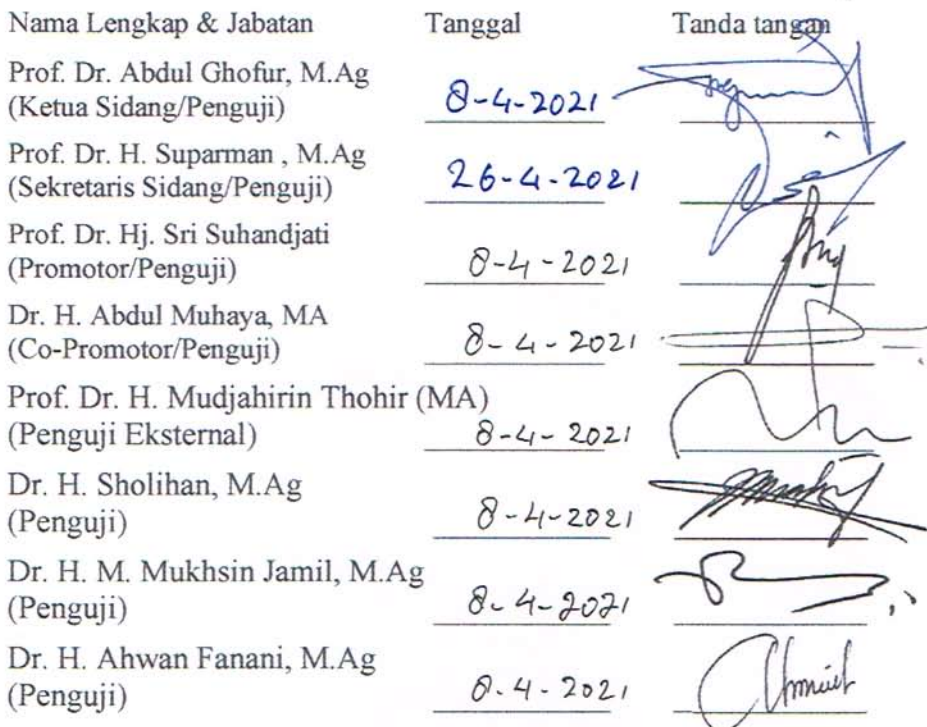 Nama Lengkap & Jabatan Tanggal Tanda tangan
Prof. Dr. Abdul Ghofur, M.Ag
(Ketua Sidang/Penguji) 8-4-2021
Prof. Dr. H. Suparman , M.Ag
(Sekretaris Sidang/Penguji) 26-4-2021
Prof. Dr. Hj. Sri Suhandjati
(Promotor/Penguji) 8-4-2021
Dr. H. Abdul Muhaya, MA
(Co-Promotor/Penguji) 8-4-2021
Prof. Dr. H. Mudjahirin Thohir (MA)
(Penguji Eksternal) 8-4-2021
Dr. H. Sholihan, M.Ag
(Penguji) 8-4-2021
Dr. H. M. Mukhsin Jamil, M.Ag
(Penguji) 8-4-2021
Dr. H. Ahwan Fanani, M.Ag
(Penguji) 8-4-2021